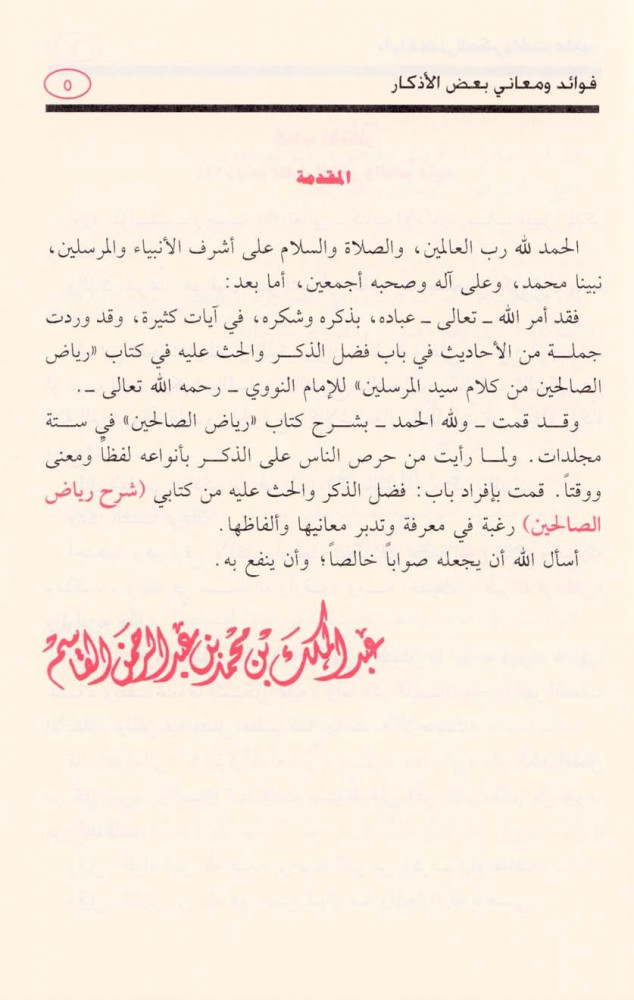 فوائد ومعاني بعض الأذكار
٥
المقدمة
الحمد لله رب العالمين، والصلاة والسلام على أشرف الأنبياء والمرسلين،
نبينا محمد، وعلى آله وصحبه أجمعين، أما بعد:
فقد أمر الله ـ تعالى ـ عباده، بذكره وشكره، في آيات كثيرة، وقد وردت
جملـة من الأحاديث في باب فضل الذكـر والحث عليه في كتاب «رياض
الصالحين من كلام سيد المرسلين» للإمام النووي ـ رحمه الله تعالى ـ.
وقـد قمت ـ ولله الحمد ـ بشـرح كتاب «رياض الصالحين» في ستـة
مجلدات. ولمـا رأيت من حرص الناس على الذكـر بأنواعه لفظاً ومعنى
ووقتاً. قمت بإفراد باب: فضل الذكر والحث عليه من كتابي (شرح رياض
الصالحين) رغبة في معرفة وتدبر معانيها وألفاظها.
أسأل الله أن يجعله صواباً خالصاً؛ وأن ينفع به.
عبد الملك بن محمد بن عبد الرحمن القاسم